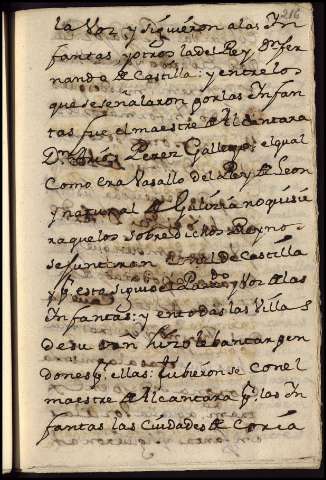 216
la Voz y siguieron a las Yn
fantas, y otros la del Rey Dn fer
nando de Castilla: y entre los
que se señalaron por las Ynfan
tas fue el maestre de Alcantara
Dn Arias Perez Gallego: el qual
como era Vasallo del Rey de Leon
y natural de Galizia no quisie
ra que los sobredichos Reynos
se juntaran al de Castilla
y pr esto siguio el Partdo y Voz de las
Ynfantas: y en todas las Villas
de su orn hizo lebantar pen
dones pr ellas: tubieron se con el
maestre de Alcantara pr las Yn
fantas las Ciudades de Coria